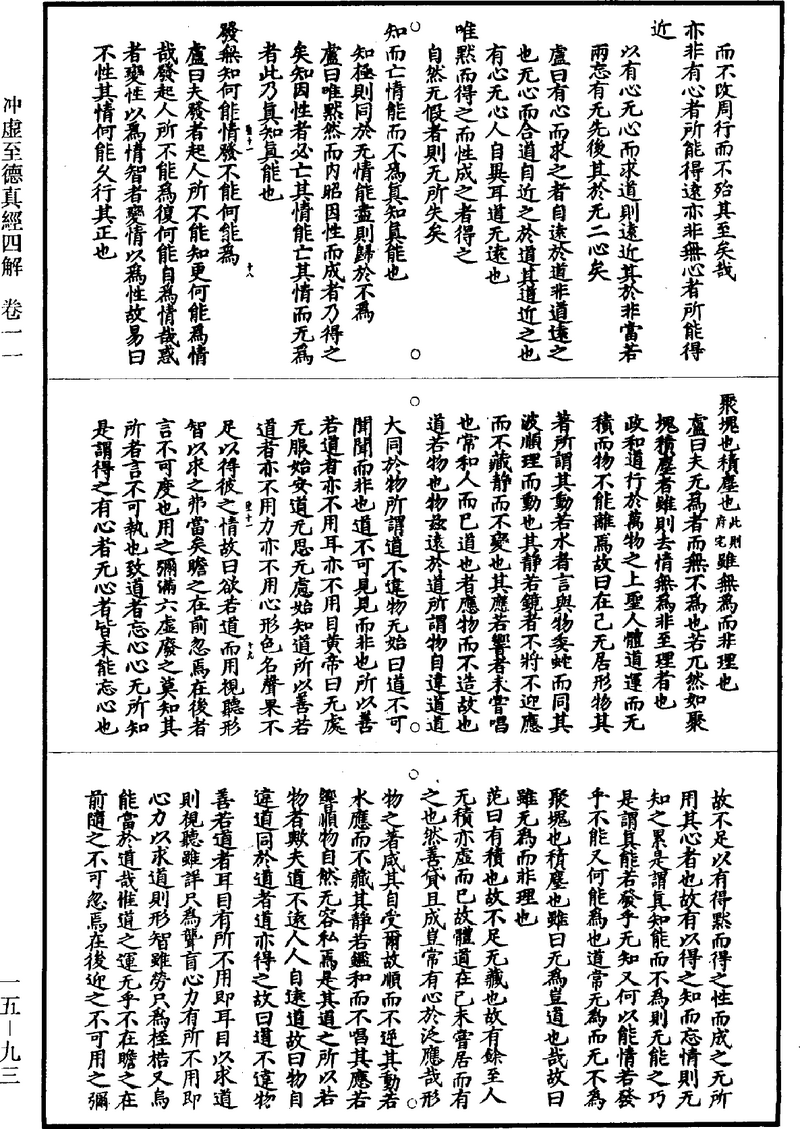 而不改周行而不殆其至矣哉
亦非有心者所能得遠亦非無心者所能得
近
以有心无心而求道則遠近其於非當若
兩忘有无先後其於无二心矣
盧曰有心而求之者自遠於道非道遠之
也无心而合道自近之於道其道近之也
有心无心人自異耳道无遠也
唯黙而得之而性成之者得之
自然无假者則无所失矣
知而亡情能而不為真知真能也
知極則同於无情能盡則歸於不為
盧曰唯黙然而内昭因性而成者乃得之
矣知因性者必亡其情能亡其情而无為
者此乃真知真能也
發無知何能情發不能何能為
盧曰夫發者起人所不能知更何能為情
哉發起人所不能為復何能自為情哉惑
者變性以為情智者變情以為性故易曰
不性其情何能久行其正也
聚塊也積塵也此則府宅雖無為而非理也
盧曰夫无為者而無不為也若兀然如聚
塊積塵者雖則去情無為非至理者也
政和道行於萬物之上聖人體道運而无
積而物不能離焉故曰在己无居形物其
著所謂其動若水者言與物委蛇而同其
波順理而動也其静若鏡者不將不迎應
而不藏静而不變也其應若響者未嘗唱
也常和人而已道也者應物而不造故也
道若物也物玆遠於道所謂物自違道道
大同於物所謂道不違物无始曰道不可
聞聞而非也道不可見見而非也所以善
若道者亦不用耳亦不用目黄帝曰无處
无服始安道无思无慮始知道所以善若
道者亦不用力亦不用心形色名聲果不
足以得彼之情故曰欲若道而用視聽形
智以求之弗當矣瞻之在前忽焉在後者
言不可度也用之彌滿六虛廢之莫知其
所者言不可執也致道者忘心心无所知
是謂得之有心者无心者皆未能忘心也
故不足以有得黙而得之性而成之无所
用其心者也故有以得之知而忘情則无
知之累是謂真知能而不為則无能之巧
是謂真能若發乎无知又何以能情若發
乎不能又何能為也道常无為而无不為
聚塊也積塵也雖曰无為豈道也哉故曰
雖无為而非理也
范曰有積也故不足无藏也故有餘至人
无積亦虛而已故體道在己未嘗居而有
之也然善貸且成豈常有心於泛應哉形
物之著咸其自受爾故順而不逆其動若
水應而不藏其静若鑑和而不唱其應若
響順物自然无容私焉是其道之所以若
物者歟夫道不遠人人自遠道故曰物自
違道同於道者道亦得之故曰道不違物
善若道者耳目有所不用即耳目以求道
則視聽雖詳只為聾盲心力有所不用即
心力以求道則形智雖勞只為桎梏又烏
能當於道哉惟道之運无乎不在瞻之在
前隨之不可忽焉在後迎之不可用之彌
冲虛至德真經四解 卷一一
一五—九三